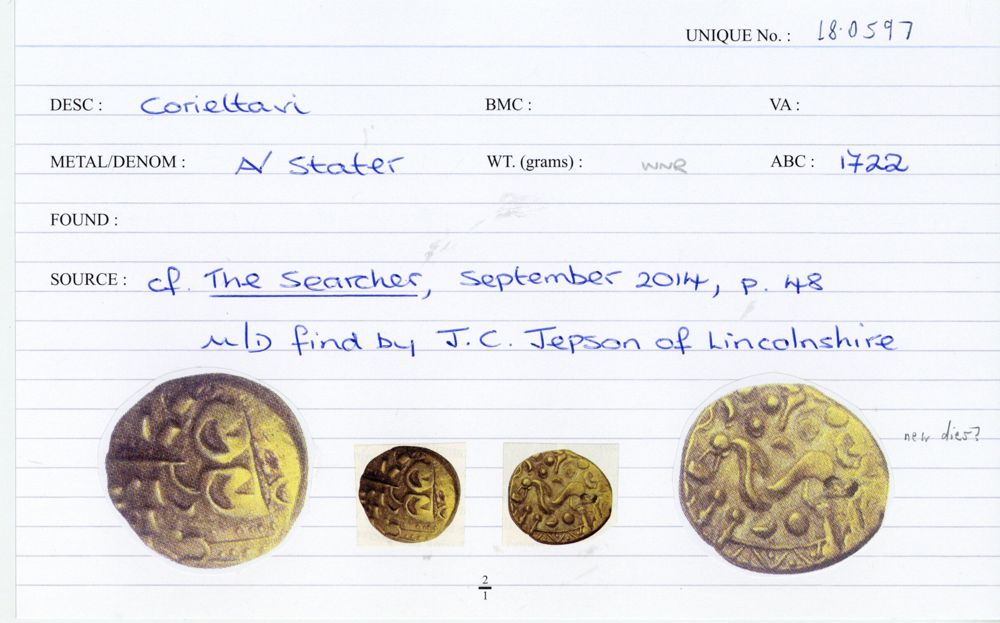 UNIQUE No. : 18.0597
DESC : Corieltavi BMC : VA :
METAL/DENOM : A/ Stater WT. (grams) : WNR ABC : 1722
FOUND :
SOURCE : cf. The Searcher, September 2014, p. 48
M/D find by J.C. Jepson of Lincolnshire
new dies?
2
1